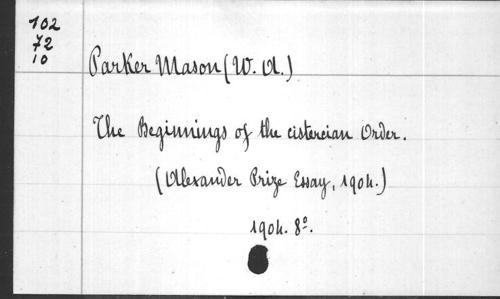 102
72
10
Parker Mason (W. A.)
The Beginnings of the cistercian Order.
(Alexander Prize Essay, 1904.)
1904. 8º.